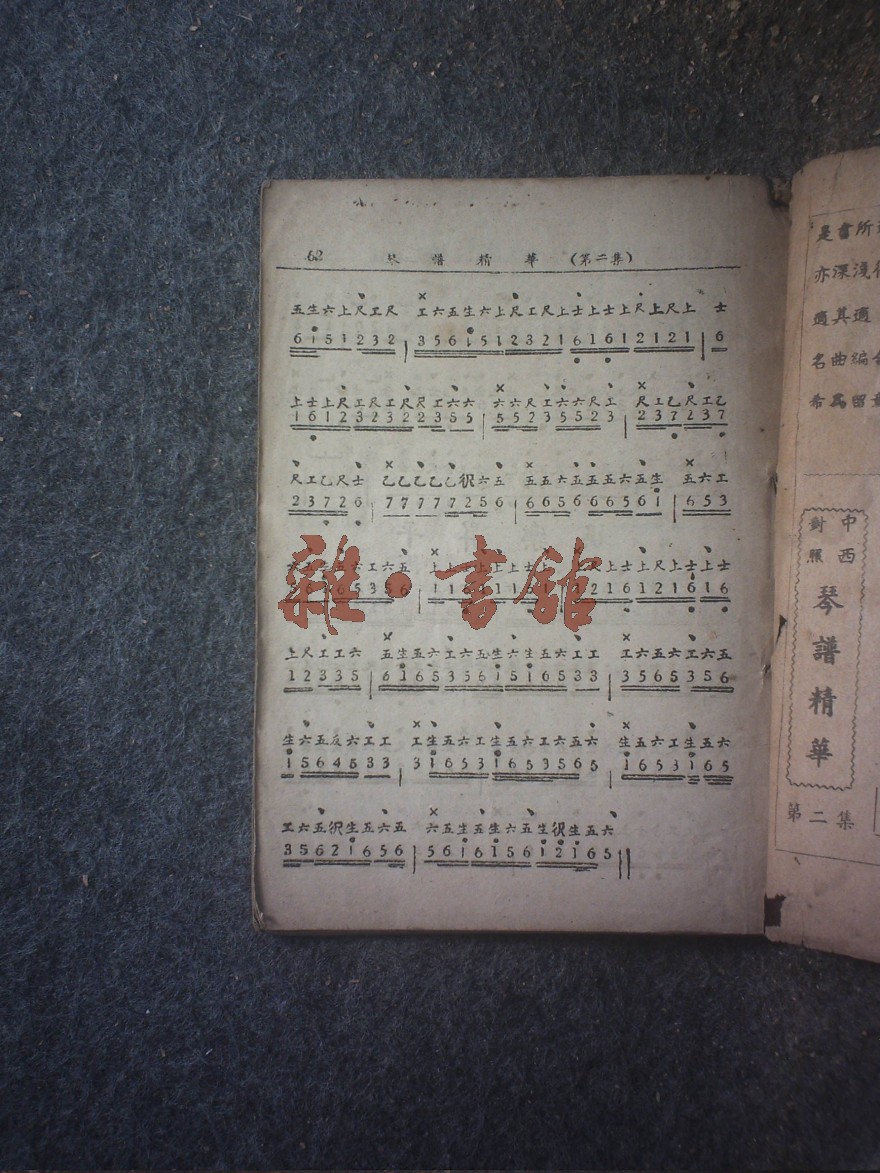 62 琴譜精華 (第二集)
五生六上尺工尺 工六五生六上尺工尺上士上士上尺上尺上 士
6 i 5 1 2 3 2 | 3 5 6 i 5 1 2 3 2 1 6 1 6 1 2 1 2 1 | 6
上士上尺工尺工尺尺工六六 六六尺工六六尺工 尺工乙尺工乙
1 6 1 2 3 2 3 2 2 3 5 5 | 5 5 2 3 5 5 2 3 | 2 3 7 2 3 7
尺工乙尺士 乙乙乙乙乙伬六五 五五六五五五六五生 五六工
2 3 7 2 6 | 7 7 7 7 7 2 5 6 | 6 6 5 6 6 6 5 6 i | 6 5 3
雜·書館
上尺工工六 五生五六工六五生六生五六工工 工六五六工六五
1 2 3 3 5 | 6 i 6 5 3 5 6 i 5 i 6 5 3 3 | 3 5 6 5 3 5 6
生六五反六工工 工生五六工生五六工六五六 生五六工生五六
i 5 6 4 5 3 3 | 3 i 6 5 3 i 6 5 3 5 6 5 | i 6 5 3 i 6 5
工六五伬生五六五 六五生五生六五生伬生五六
3 5 6 2 i 6 5 6 | 5 6 i 6 i 5 6 i 2 i 6 5 ||
是書所
亦深淺
適其適
名曲編
希爲留
中西對照
琴譜精華
第二集